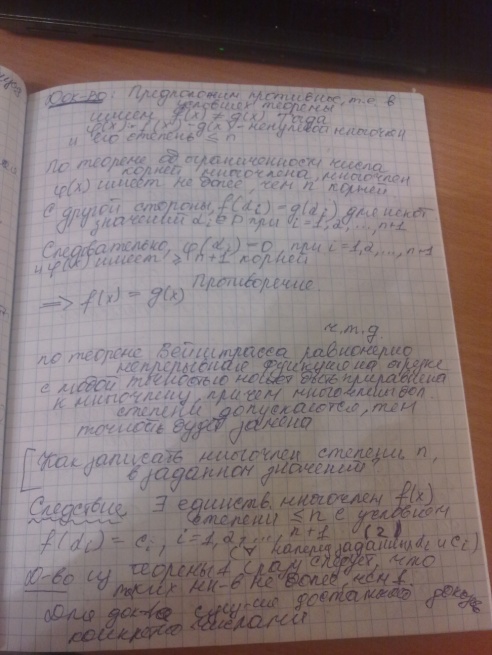 Док-во: Предположим противное, т.е. в
условиях теоремы
имеем f(x) ≠ g(x). Тогда
φ(x) = f(x) - g(x) - ненулевой многочлен
и его степень ≤ n
По теореме об ограниченности числа
корней многочлена, многочлен
φ(x) имеет не более, чем n корней
С другой стороны, f(αi) = g(αi) для некот.
значений αi при i = 1,2,...,n+1
Следовательно, φ(αi) = 0, при i = 1,2,...,n+1
и φ(x) имеет ≥ n+1 корней
Противоречие
=> f(x) = g(x)
ч.т.д.
по теореме Вейштрасса равномерно
непрерывная функция на отрезке
с любой точностью может быть приравнена
к многочлену, причем многочлен
степени допускаются, тем
точность будет
Как записать многочлен степени n,
в заданном значении?
Следствие ∃ единств. многочлен f(x)
степени ≤ n с условием
f(αi) = ci, i = 1,2,..., n+1 (2)
(∀ наперед заданных αi и ci)
Д-во из теоремы 1 сразу следует, что
таких мн-в не более чем 1.
Для док-ва достаточно